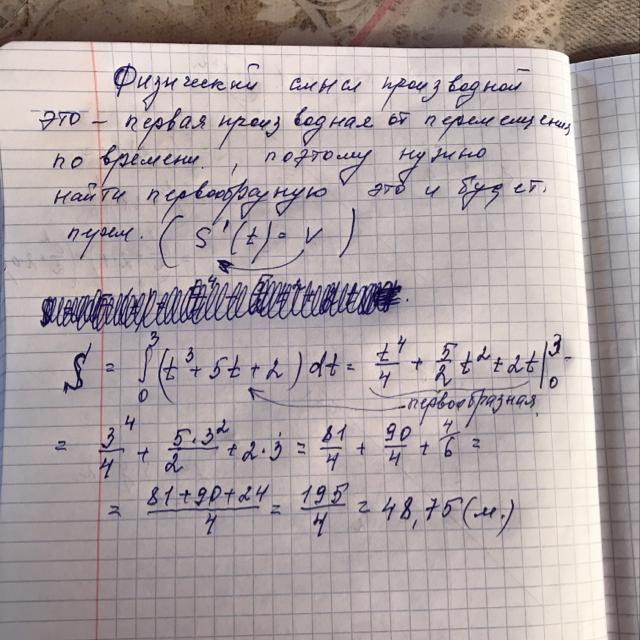 Физический смысл производной
это – первая производная от перемещения
по времени, поэтому нужно
найти первообразную это и будет
путем. (S'(t) = v)
S = ∫₀³ (t³ + 5t + 2) dt = t⁴/4 + 5/2 t² + 2t |₀³ =
первообразная
= 3⁴/4 + 5·3²/2 + 2·3 = 81/4 + 90/4 + 4/6 =
= (81+90+24)/4 = 195/4 = 48,75 (м.)